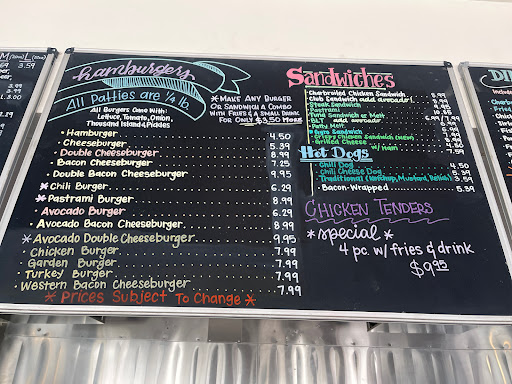 M L
3.59
hamburgers
All Patties are 1/4 lb.
All Burgers Come With:
Lettuce, Tomato, Onion
Thousand Island & Pickles
* Make Any Burger
Or Sandwich A Combo
With Fries & A Small Drink
For Only $3.50 More
• Hamburger 4.50
• Cheeseburger 5.39
• Double Cheeseburger 8.99
• Bacon Cheeseburger 7.25
• Double Bacon Cheeseburger 9.95
* Chili Burger 6.29
* Pastrami Burger 8.99
• Avocado Burger 6.29
• Avocado Bacon Cheeseburger 8.99
* Avocado Double Cheeseburger 9.95
Chicken Burger 7.99
Garden Burger 7.99
Turkey Burger 7.99
Western Bacon Cheeseburger 7.99
* Prices Subject To Change *
Sandwiches
• Charbroiled Chicken Sandwich
• Club Sandwich add avocado
• Steak Sandwich
• Pastrami
• Tuna Sandwich or Melt
• BLT add avocado
• Patty Melt
• Gyro Sandwich
• Crispy Chicken Sandwich (new)
• Grilled Cheese
Hot Dogs
• Chili Dog 4.50
• Chili Cheese Dog
• Traditional (Ketchup, Mustard, Relish) 3.59
• Bacon-Wrapped 5.39
Chicken Tenders
* special *
4 pc. w/ fries & drink
$9.95